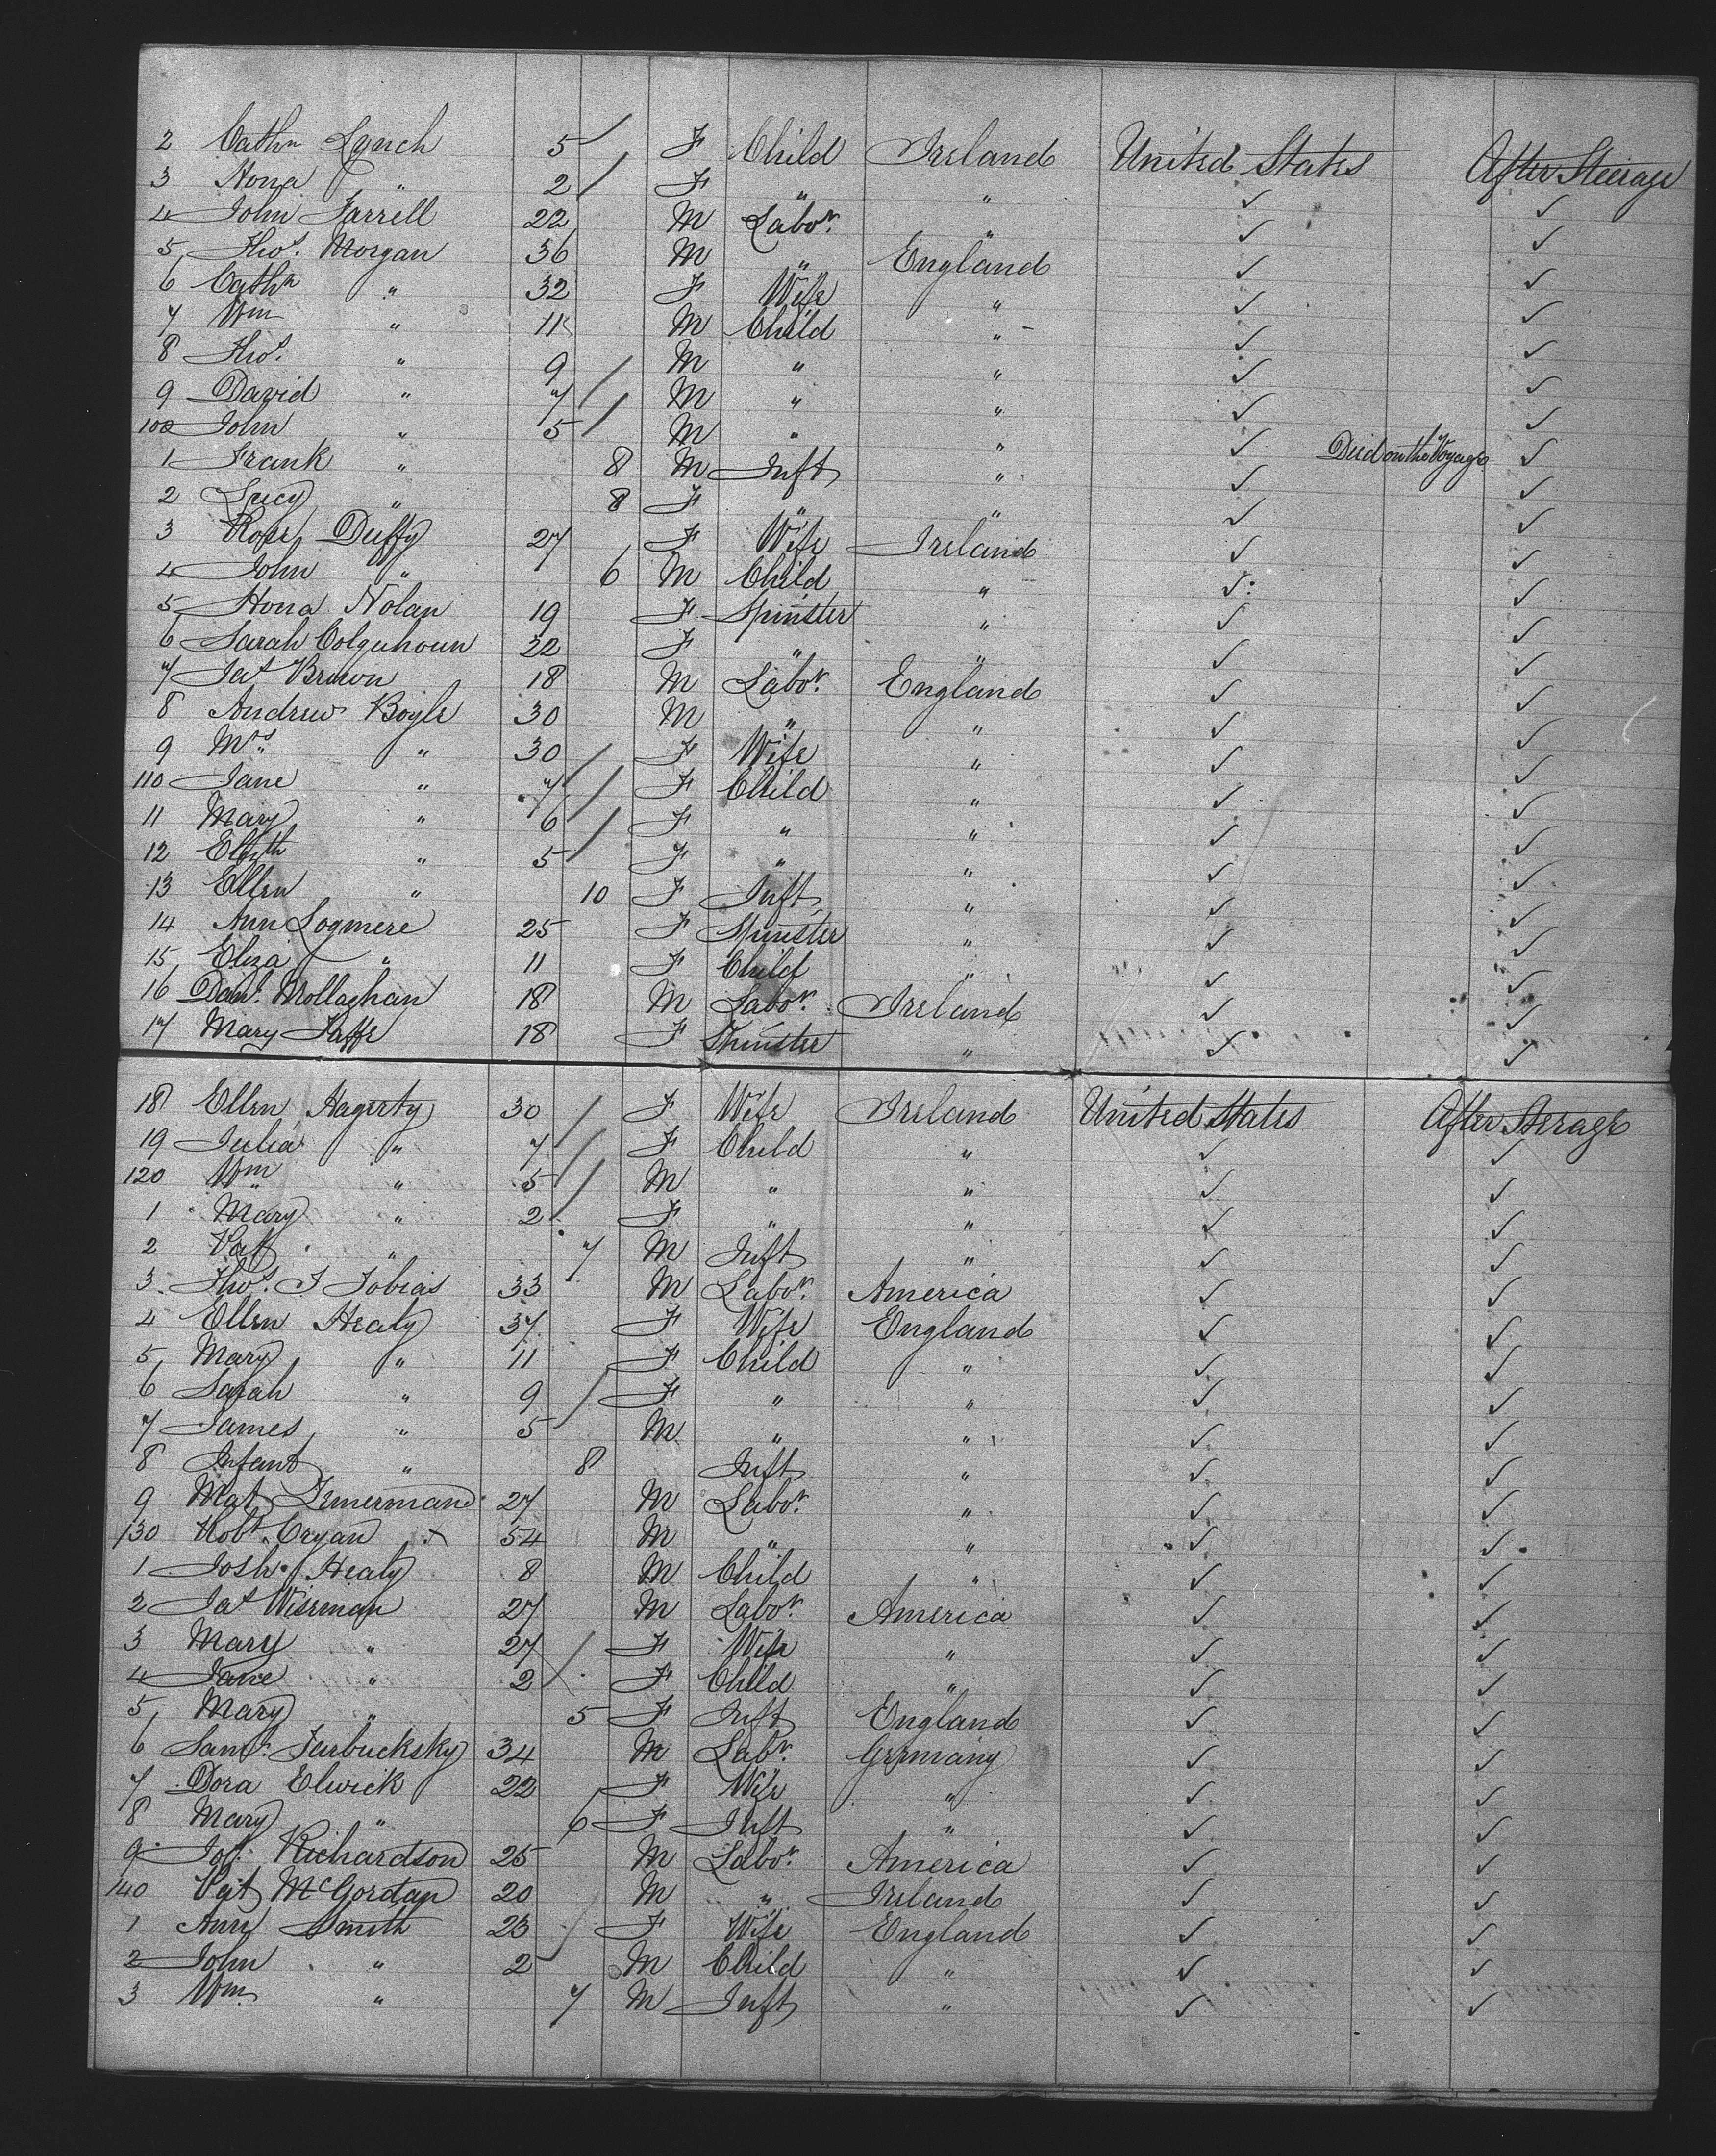 2 Cathn Lynch 5 F Child Ireland United States After Steerage
3 Hona " 2 F " " ✓ ✓
4 John Farrell 22 M Labor. " ✓ ✓
5 Thos. Morgan 36 M " England ✓ ✓
6 Cathn " 32 F Wife " ✓ ✓
7 Wm " 11 M Child " ✓ ✓
8 Thos. " 9 M " " ✓ ✓
9 David " 7 M " " ✓ ✓
100 John " 5 M " " ✓ ✓
1 Frank " 8 M Inft " ✓ Died on the Voyage ✓
2 Lucy " 8 F " " ✓ ✓
3 Rose Duffy 27 F Wife Ireland ✓ ✓
4 John " 6 M Child " ✓ ✓
5 Hona Nolan 19 F Spinster " ✓ ✓
6 Sarah Colquhoun 32 F " " ✓ ✓
7 Jas Brown 18 M Labor. England ✓ ✓
8 Andrew Boyle 30 M " " ✓ ✓
9 Mrs " 30 F Wife " ✓ ✓
110 Jane " 7 F Child " ✓ ✓
11 Mary " 6 F " " ✓ ✓
12 Elizth " 5 F " " ✓ ✓
13 Ellen " 10 F Inft " ✓ ✓
14 Ann Logmere 25 F Spinster " ✓ ✓
15 Eliza " 11 F Child " ✓ ✓
16 Danl. Mollaghan 18 M Labor. Ireland ✓ ✓
17 Mary Taffe 18 F Spinster " ✓ ✓
18 Ellen Hagerty 30 F Wife Ireland United States After Sterage
19 Julia " 7 F Child " ✓ ✓
120 Wm " 5 M " " ✓ ✓
1 Mary " 2 F " " ✓ ✓
2 Pat " 7 M Inft " ✓ ✓
3 Thos. J Tobias 33 M Labor. America ✓ ✓
4 Ellen Healy 37 F Wife England ✓ ✓
5 Mary " 11 F Child " ✓ ✓
6 Sarah " 9 F " " ✓ ✓
7 James " 5 M " " ✓ ✓
8 Infant " 8 Inft " ✓ ✓
9 Mat 27 M Labor. " ✓ ✓
130 Robt. Cryan 54 M " " ✓ ✓
1 Josh. Healy 8 M Child " ✓ ✓
2 Jas Wiseman 27 M Labor. America ✓ ✓
3 Mary " 27 F Wife " ✓ ✓
4 Jane " 2 F Child " ✓ ✓
5 Mary " 5 F Inft England ✓ ✓
6 Saml. 34 M Labr. Germany ✓ ✓
7 Dora Elwick 22 F Wife " ✓ ✓
8 Mary " 6 F Inft " ✓ ✓
9 Jos. Richardson 25 M Labor. America ✓ ✓
140 Pat McGordan 20 M " Ireland ✓ ✓
1 Ann Smith 23 F Wife England ✓ ✓
2 John " 2 M Child " ✓ ✓
3 Wm. " 7 M Inft " ✓ ✓